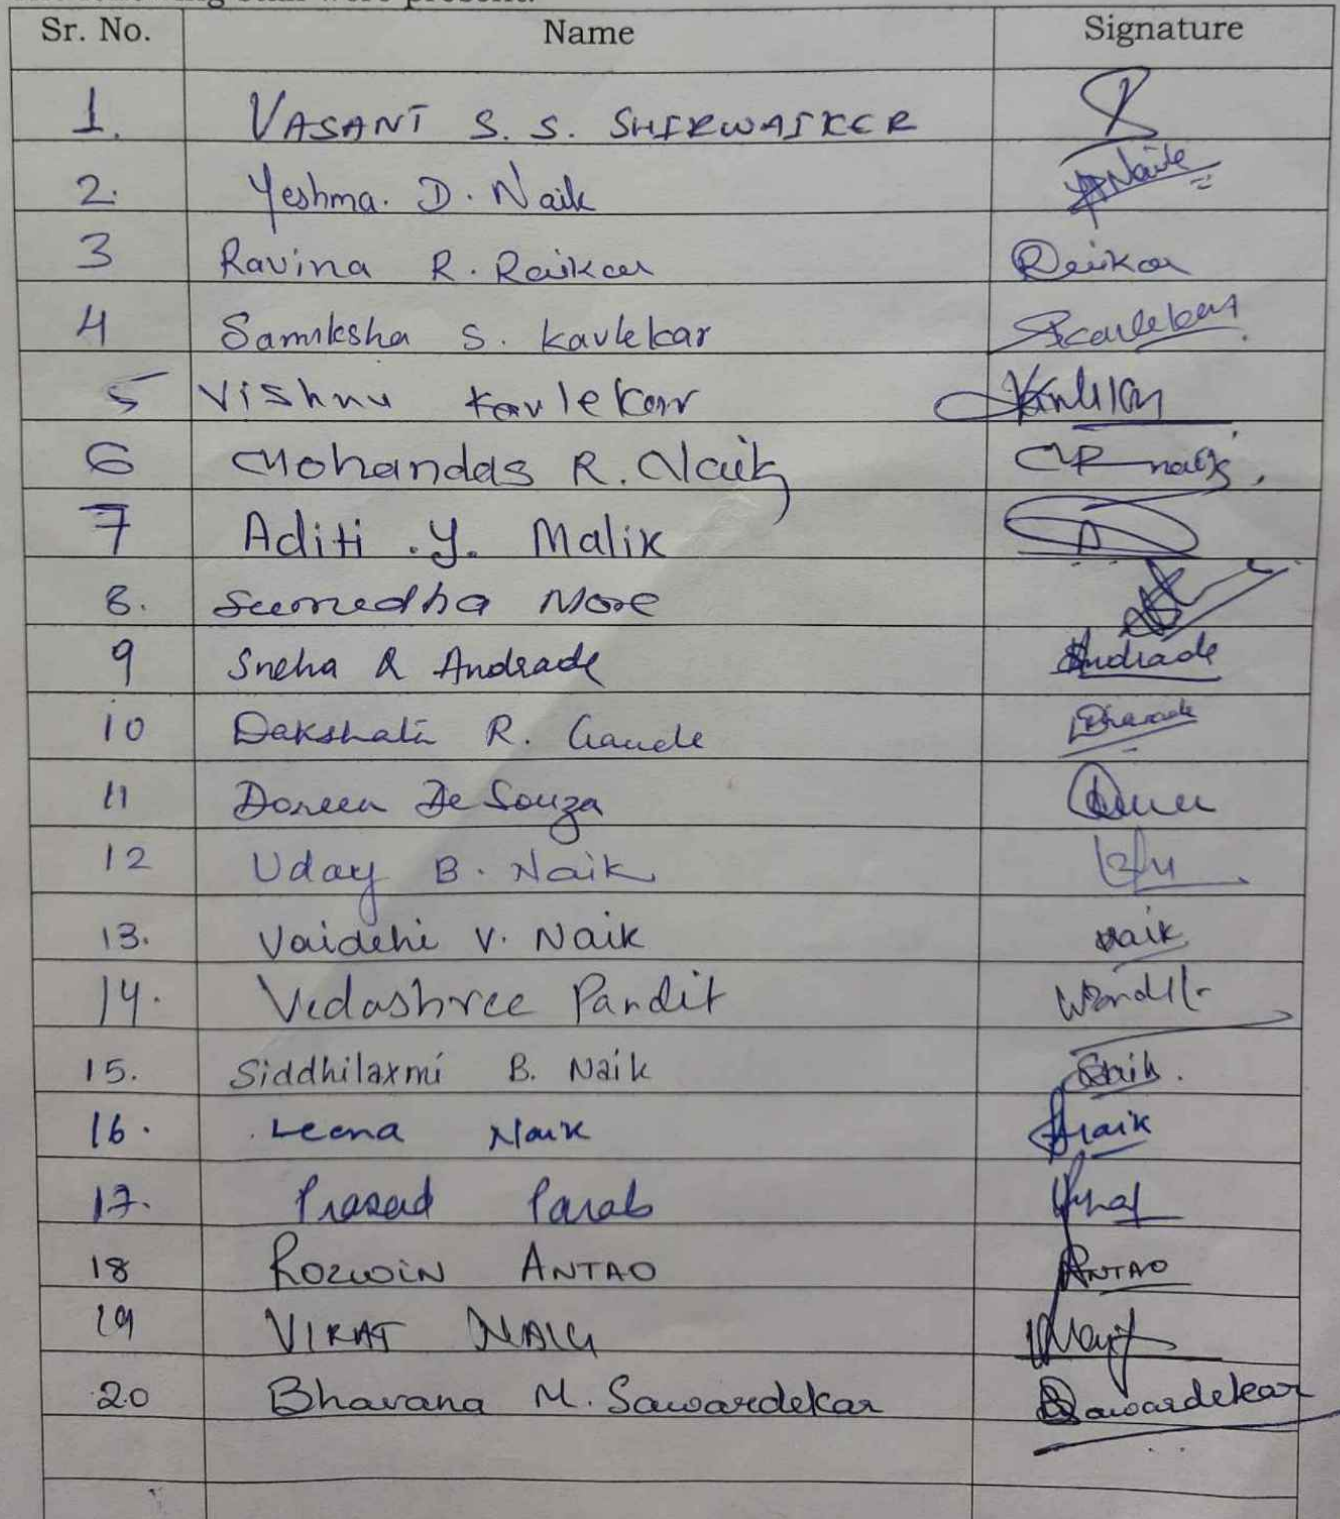 Sr. No. Name Signature
1. VASANT S. S. SHIRWAIKER
2. Yeshma. D. Naik Naik
3 Ravina R. Raikar Raikar
4 Samiksha S. Kavlekar Skavlekar
5 Vishnu Kavlekar
6 Mohandas R. Naik MR naik
7 Aditi .Y. Malik A
8. Sumedha More
9 Sneha R Andrade Andrade
10 Dakshata R. Gaude
11 Doreen De Souza
12 Uday B. Naik
13. Vaidehi V. Naik Naik
14. Vedashree Pandit
15. Siddhilaxmi B. Naik Snaik.
16. Leena Naik Naik
17. Prasad Parab
18 ROZWIN ANTAO ANTAO
19 VIRAT NAIK
20 Bhavana M. Sawardekar Sawardekar